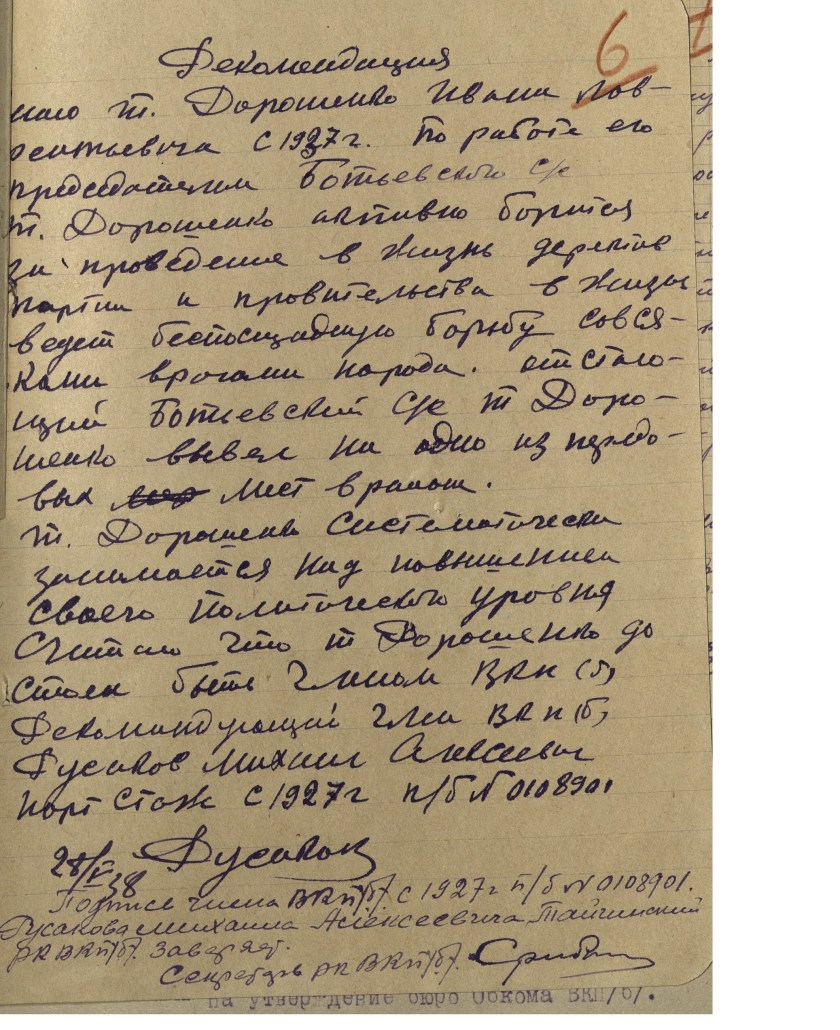 6
Рекомендация
т. Дорошенко Ивана Лав-
рентьевича с 1937 г. По работе его
председателем Ботьевского с/с
т. Дорошенко активно борится
за проведение в жизнь деректив
партии и провительства в жизнь
ведет беспощадную борьбу совся-
ками врагами народа. отстаю-
щий Ботьевский с/с т Доро-
шенко вывел на одно из передо-
вых мест врайоне.
т. Дорошенко систематически
занимается над повышением
своего политического уровня
Считаю что т Дорошенко до
стоен быть членом ВКП(б)
Рекомендующий член ВКП(б)
Русаков Михаил Алексеевич
парт стаж с 1927 г п/б № 0108901
28/V 38 Русаков
Подпись члена ВКП/б/. с 1927 г п/б № 0108901.
Русакова Михаила Алексеевича Тайчинский
РК ВКП/б/. Заверяет.
Секретарь РК ВКП/б/.
на утверждение бюро Обкома ВКП/б/.